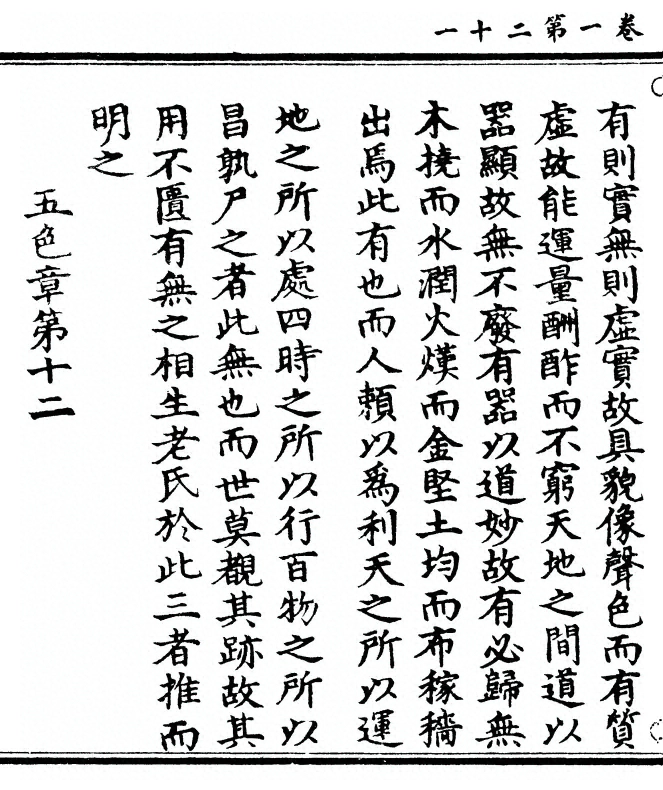 卷一第二十一
有則實無則虛實故具貌像聲色而有質
虛故能運量酬酢而不窮天地之間道以
器顯故無不廢有器以道妙故有必歸無
木撓而水潤火熯而金堅土均而布稼穡
出焉此有也而人賴以為利天之所以運
地之所以處四時之所以行百物之所以
昌孰尸之者此無也而世莫覩其跡故其
用不匱有無之相生老氏於此三者推而
明之
五色章第十二